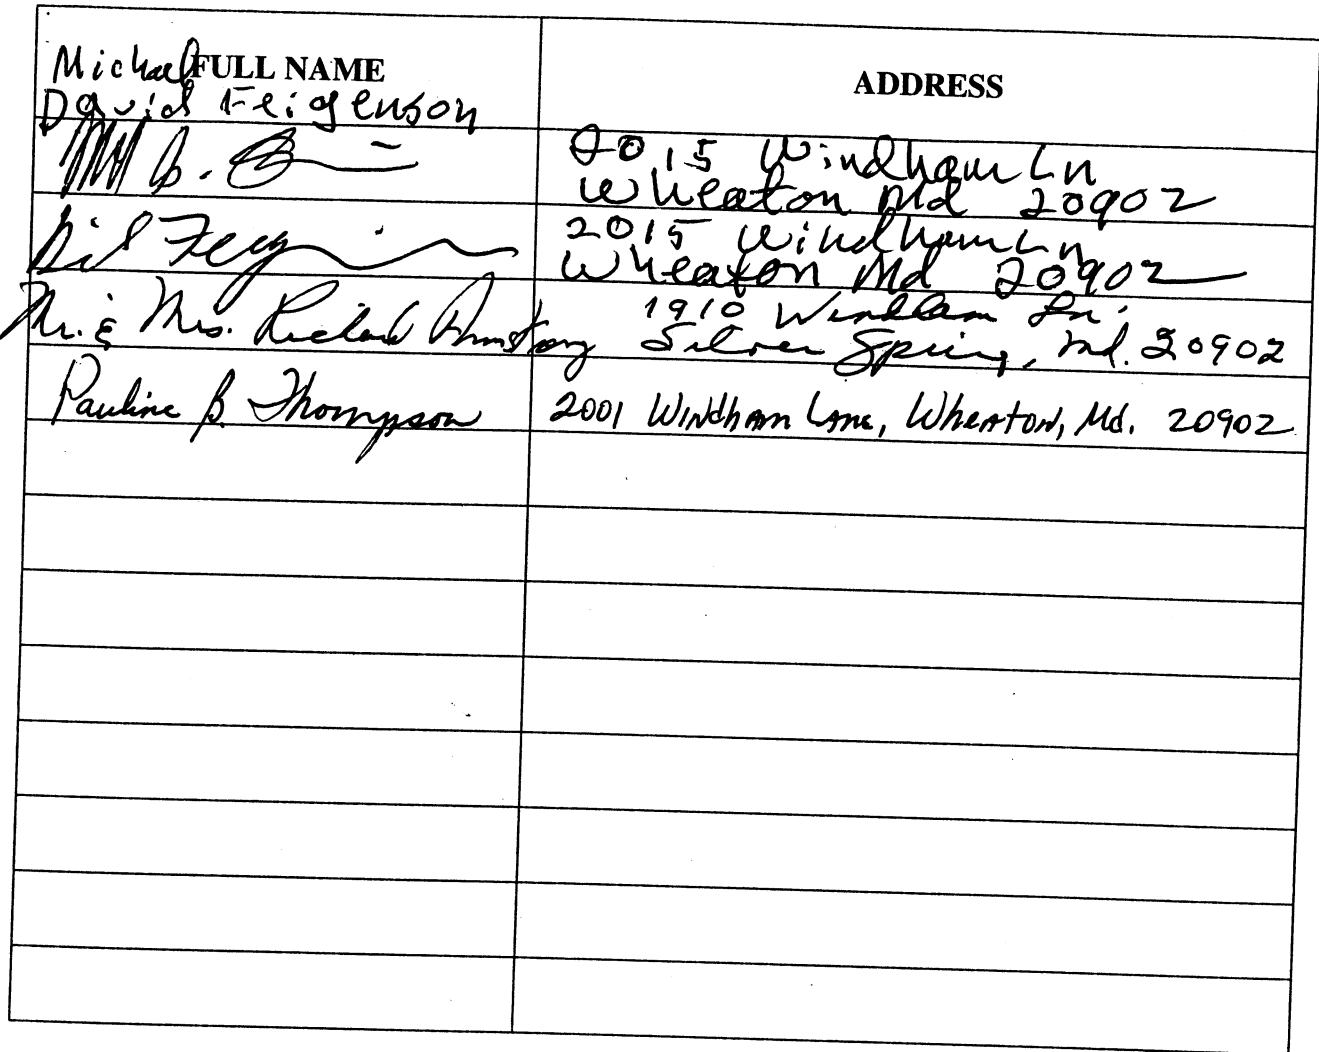 Michael FULL NAME ADDRESS
David Feigenson
2015 Windham Ln
Wheaton Md 20902
2015 Windham Ln
Wheaton Md 20902
Mr. & Mrs. Richard Armstrong 1910 Windham Ln.
Silver Spring, Md. 20902
Pauline B. Thompson 2001 Windham Lane, Wheaton, Md. 20902